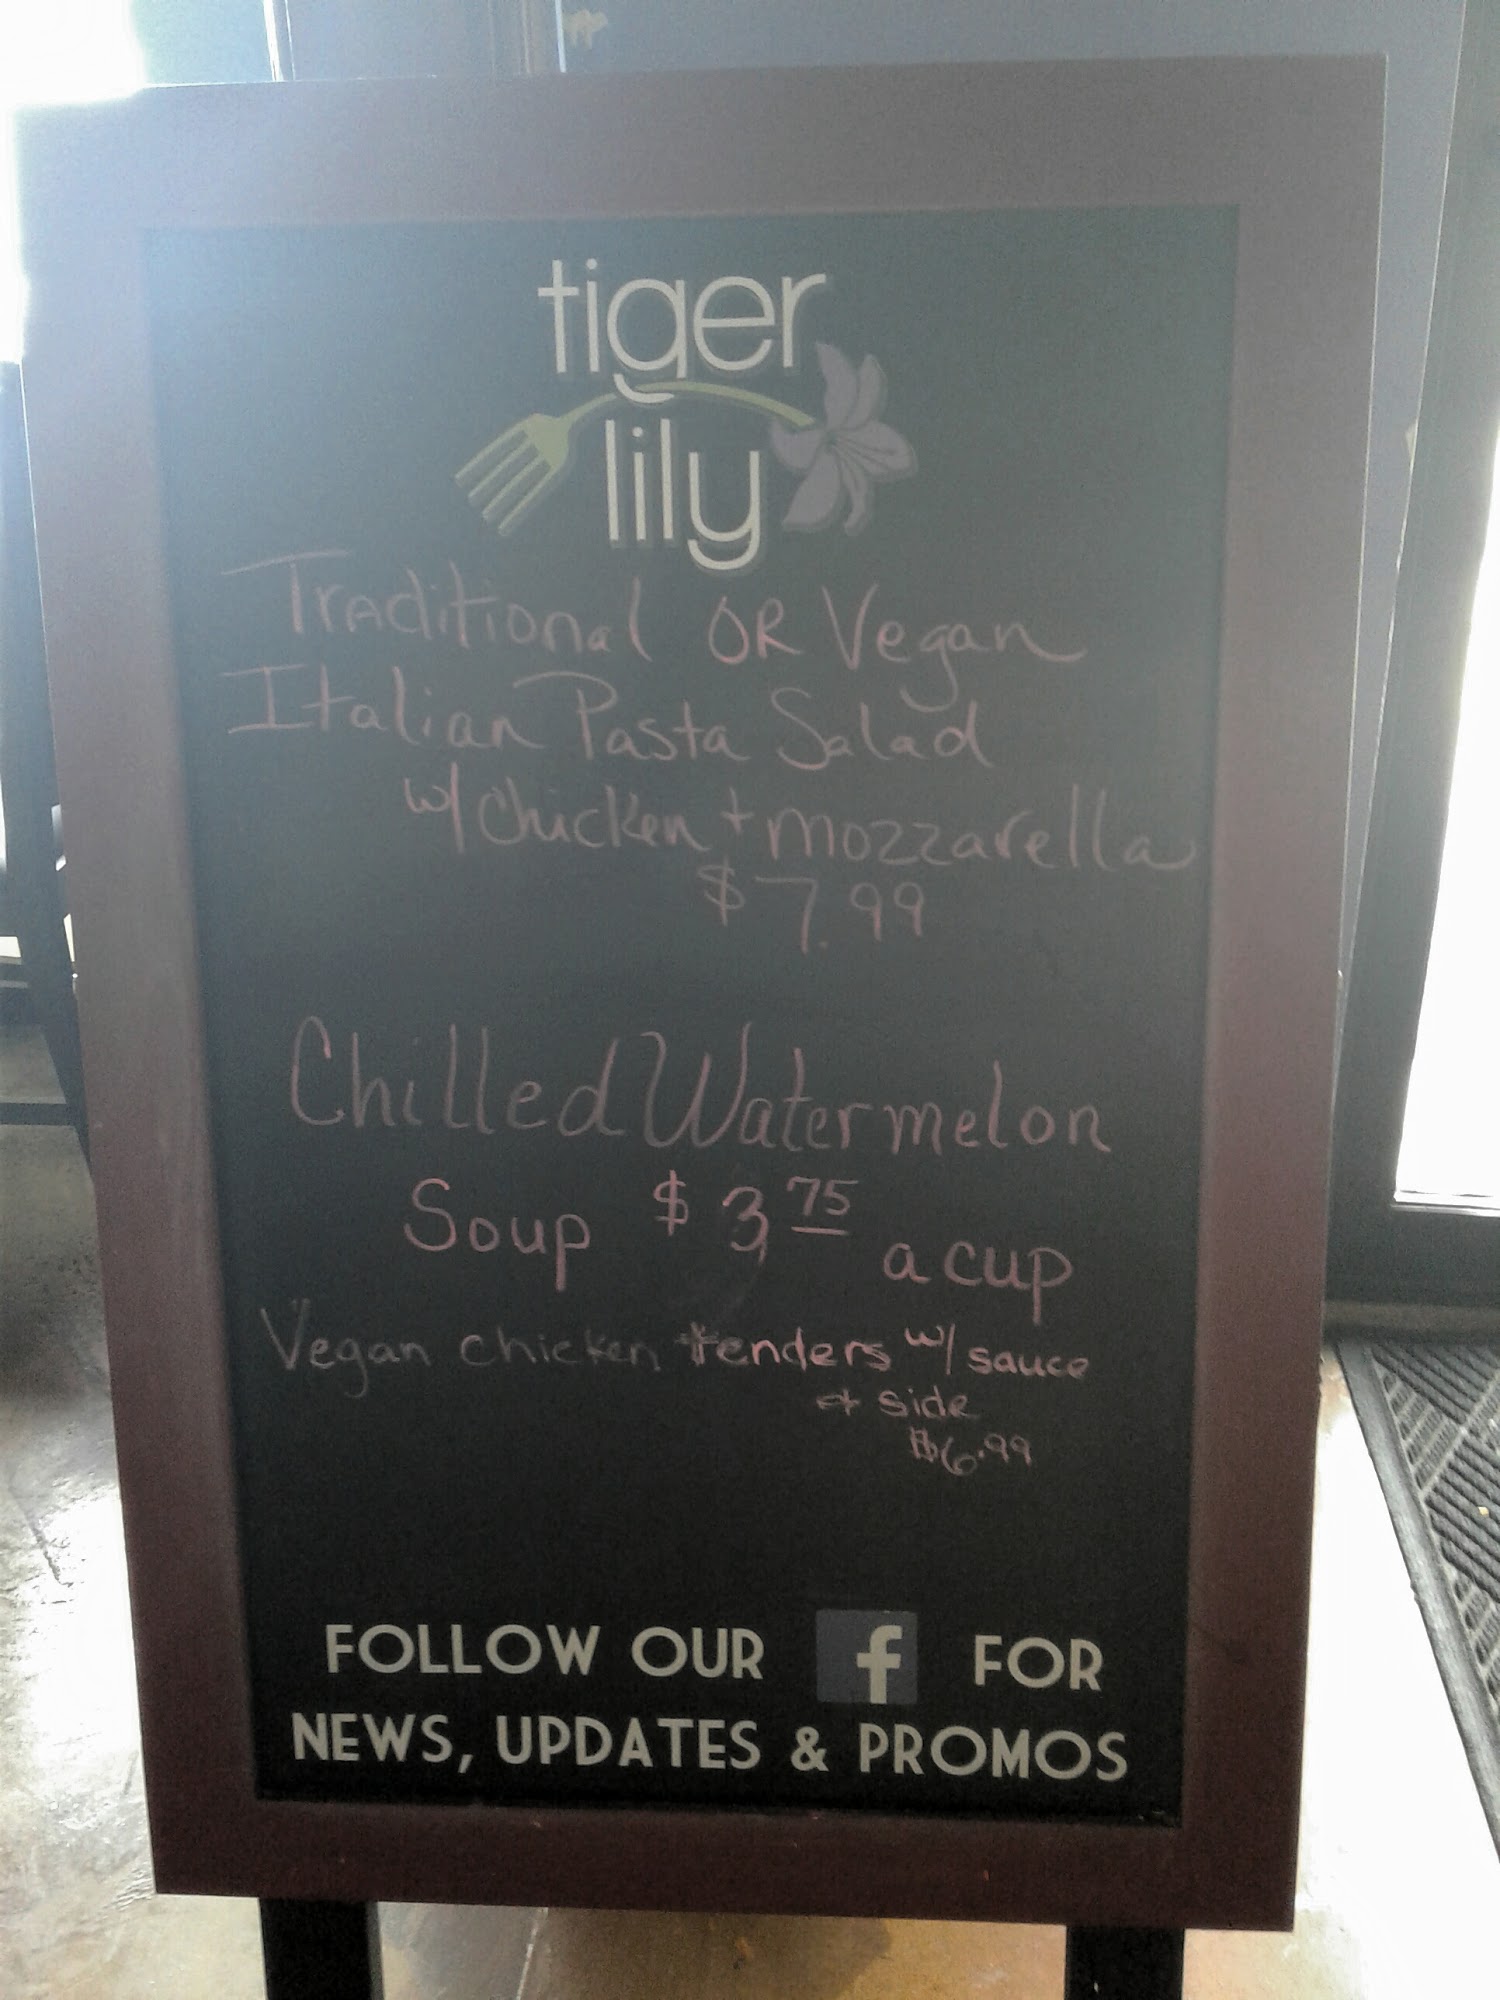 tiger
lily
Traditional OR Vegan
Italian Pasta Salad
w/ chicken + mozzarella
$7.99
Chilled Watermelon
Soup $3.75 a cup
Vegan chicken tenders w/ sauce
+ side
$6.99
FOLLOW OUR f FOR
NEWS, UPDATES & PROMOS